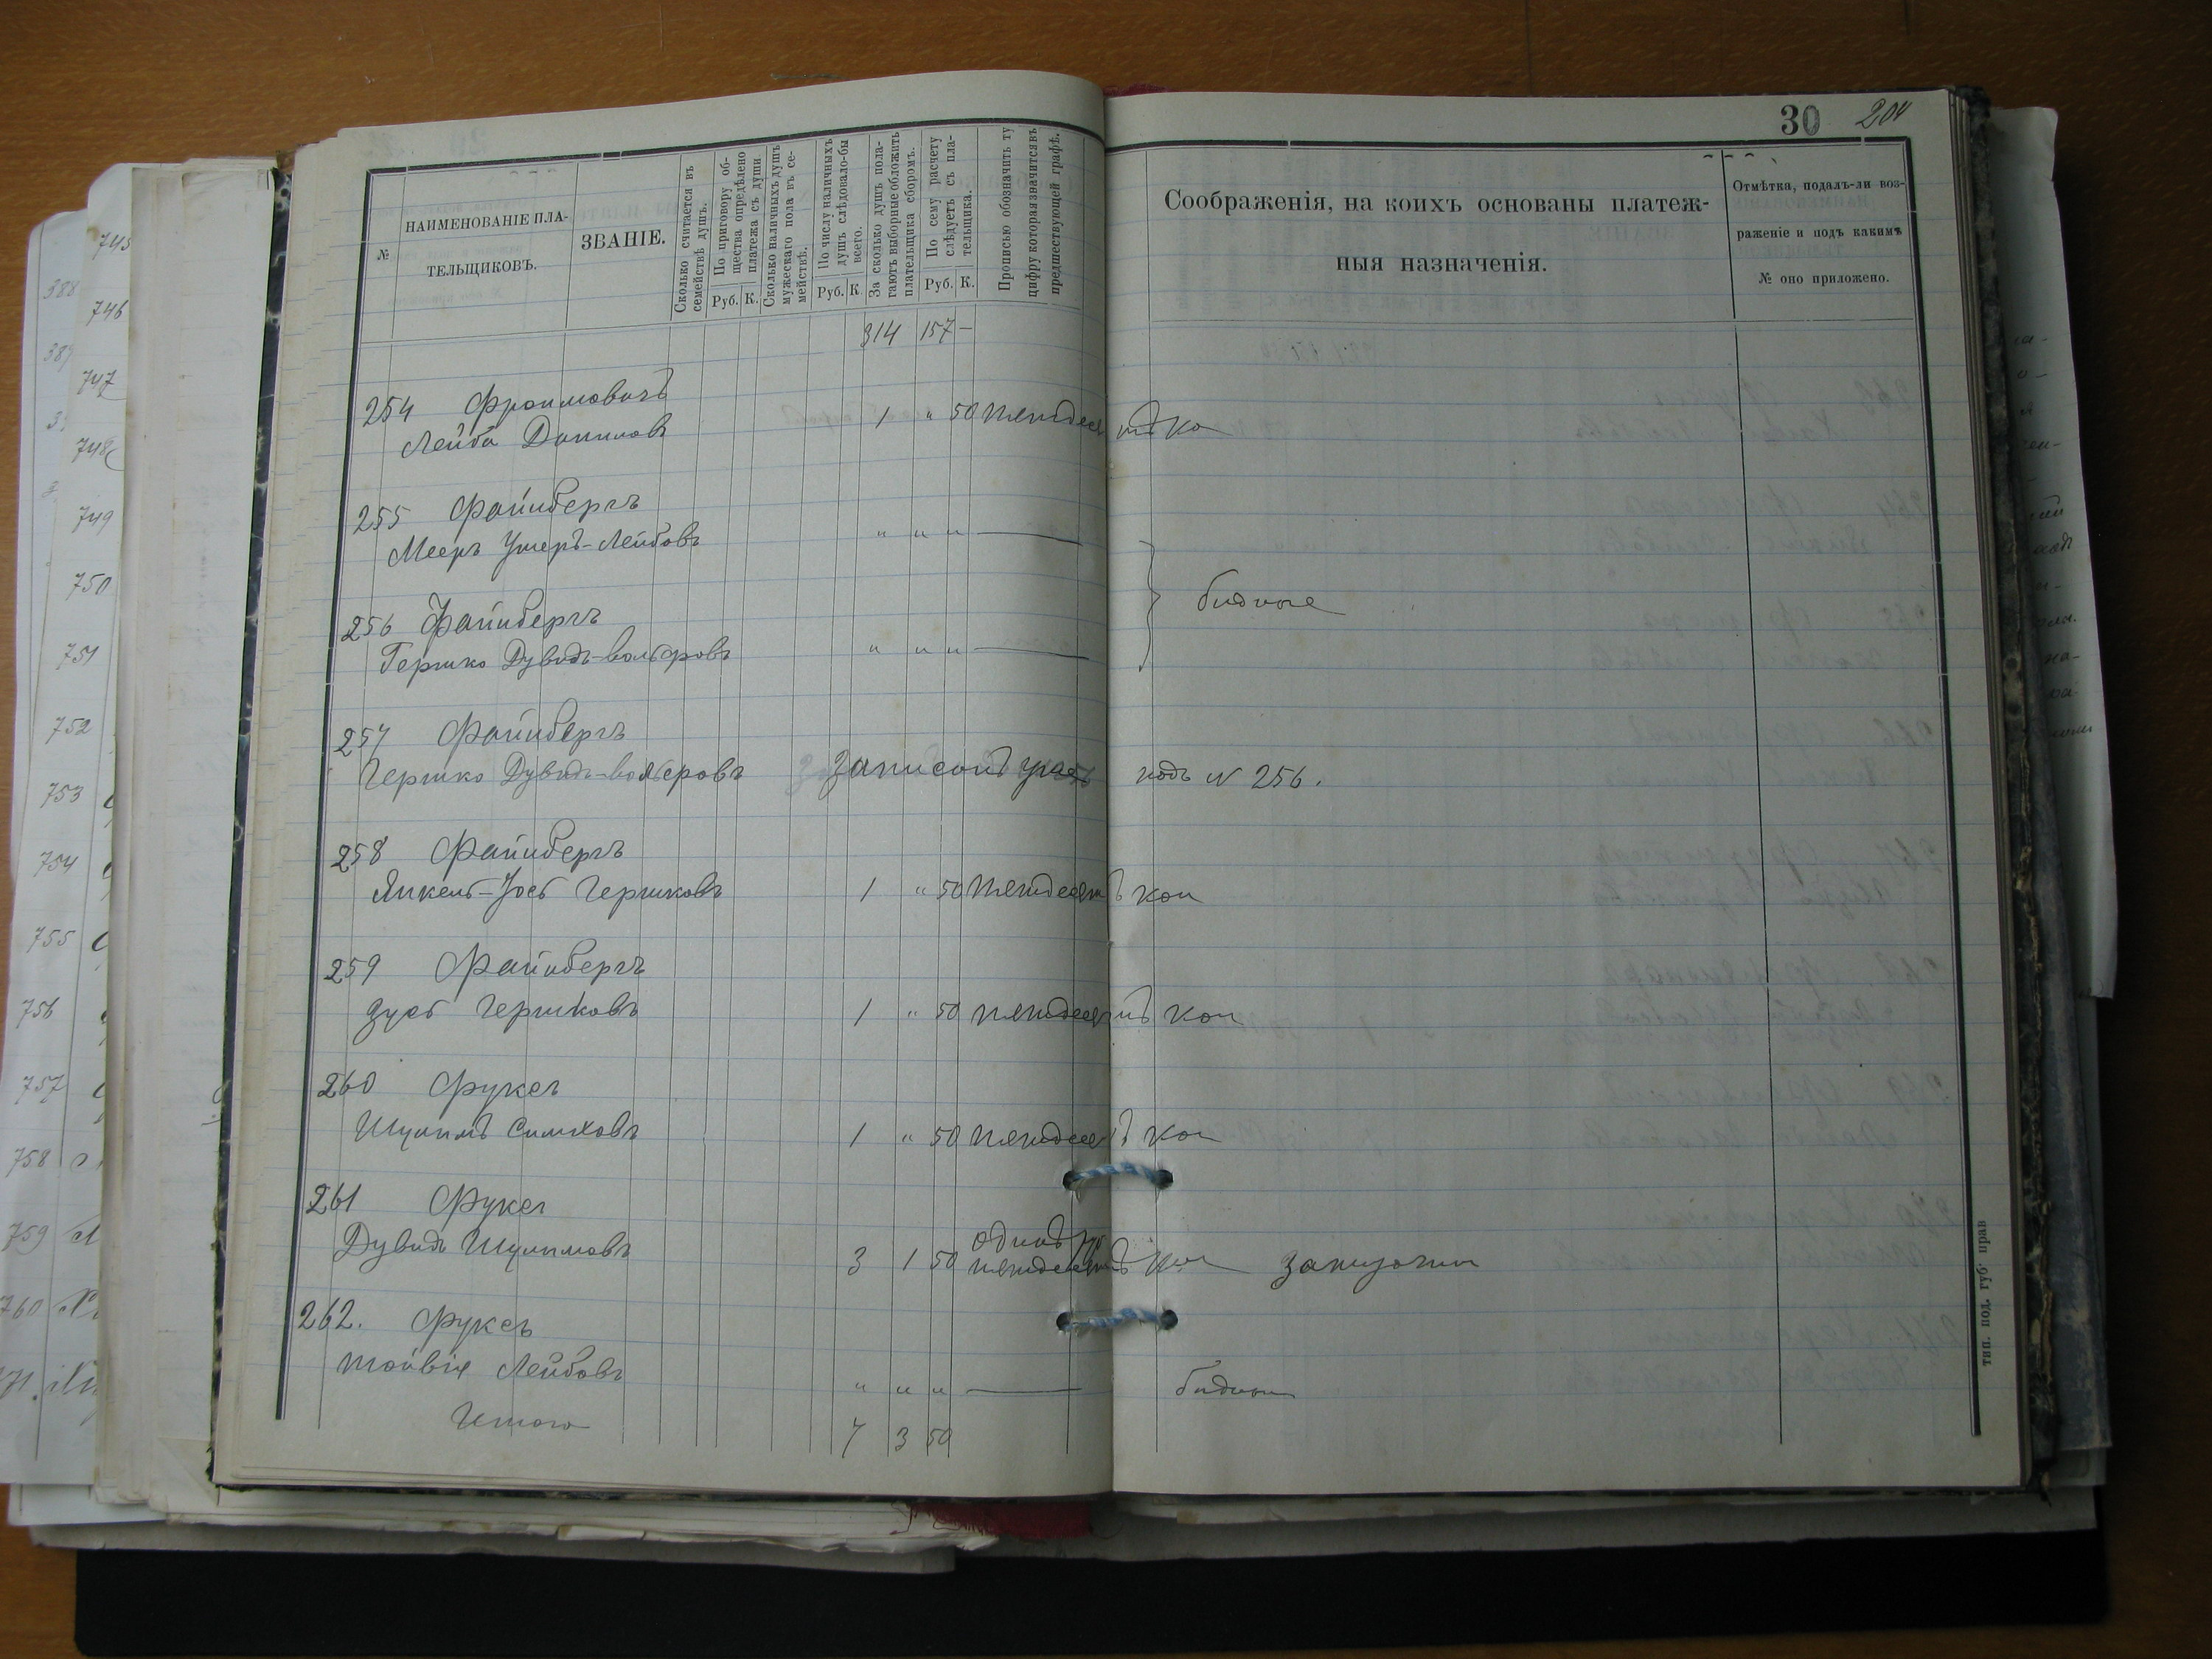 30 204
№
НАИМЕНОВАНІЕ ПЛА-
ТЕЛЬЩИКОВЪ.
ЗВАНІЕ.
Сколько считается въ
семействѣ душъ.
По приговору об-
щества опредѣлено
платежа съ души.
Руб. К.
Сколько наличныхъ душъ
мужескаго пола въ се-
мействѣ.
По числу наличныхъ
душъ слѣдовало-бы
всего.
Руб. К.
За сколько душъ пола-
гаютъ выборные обложить
плательщика сборомъ.
По сему расчету
слѣдуетъ съ пла-
тельщика.
Руб. К.
Прописью обозначить ту
цифру которая значится въ
предшествующей графѣ.
Соображенія, на коихъ основаны платеж-
ныя назначенія.
Отмѣтка, подалъ-ли воз-
раженіе и подъ какимъ
№ оно приложено.
314 157 —
254 Фроимовичъ
Лейба Даниловъ 1 " 50 пятдесятъ ко
255 Файнбергъ
Мееръ Ушеръ-Лейбовъ " " " —
256 Файнбергъ
бѣдные
Гершко Дувидъ-Вольфовъ " " " —
257 Файнбергъ
Гершко Дувидъ-Вольфовъ Записанъ уже подъ N 256.
258 Файнбергъ
Янкель-Зусь Гершковъ 1 " 50 пятдесятъ коп
259 Файнбергъ
Зусь Гершковъ 1 " 50 пятдесятъ коп
260 Фуксъ
Шулимъ Симховъ 1 " 50 пятдесятъ коп
261 Фуксъ
Дувидъ Шулимовъ 3 1 50 одинъ ру
пятдесятъ коп зажиточн
262. Фуксъ
Тойвія Лейбовъ " " " — бѣдный
Итого 7 3 50
тип. под. губ. прав
745
746
747
748
749
750
751
752
753
754
755
756
757
758
759
760
388